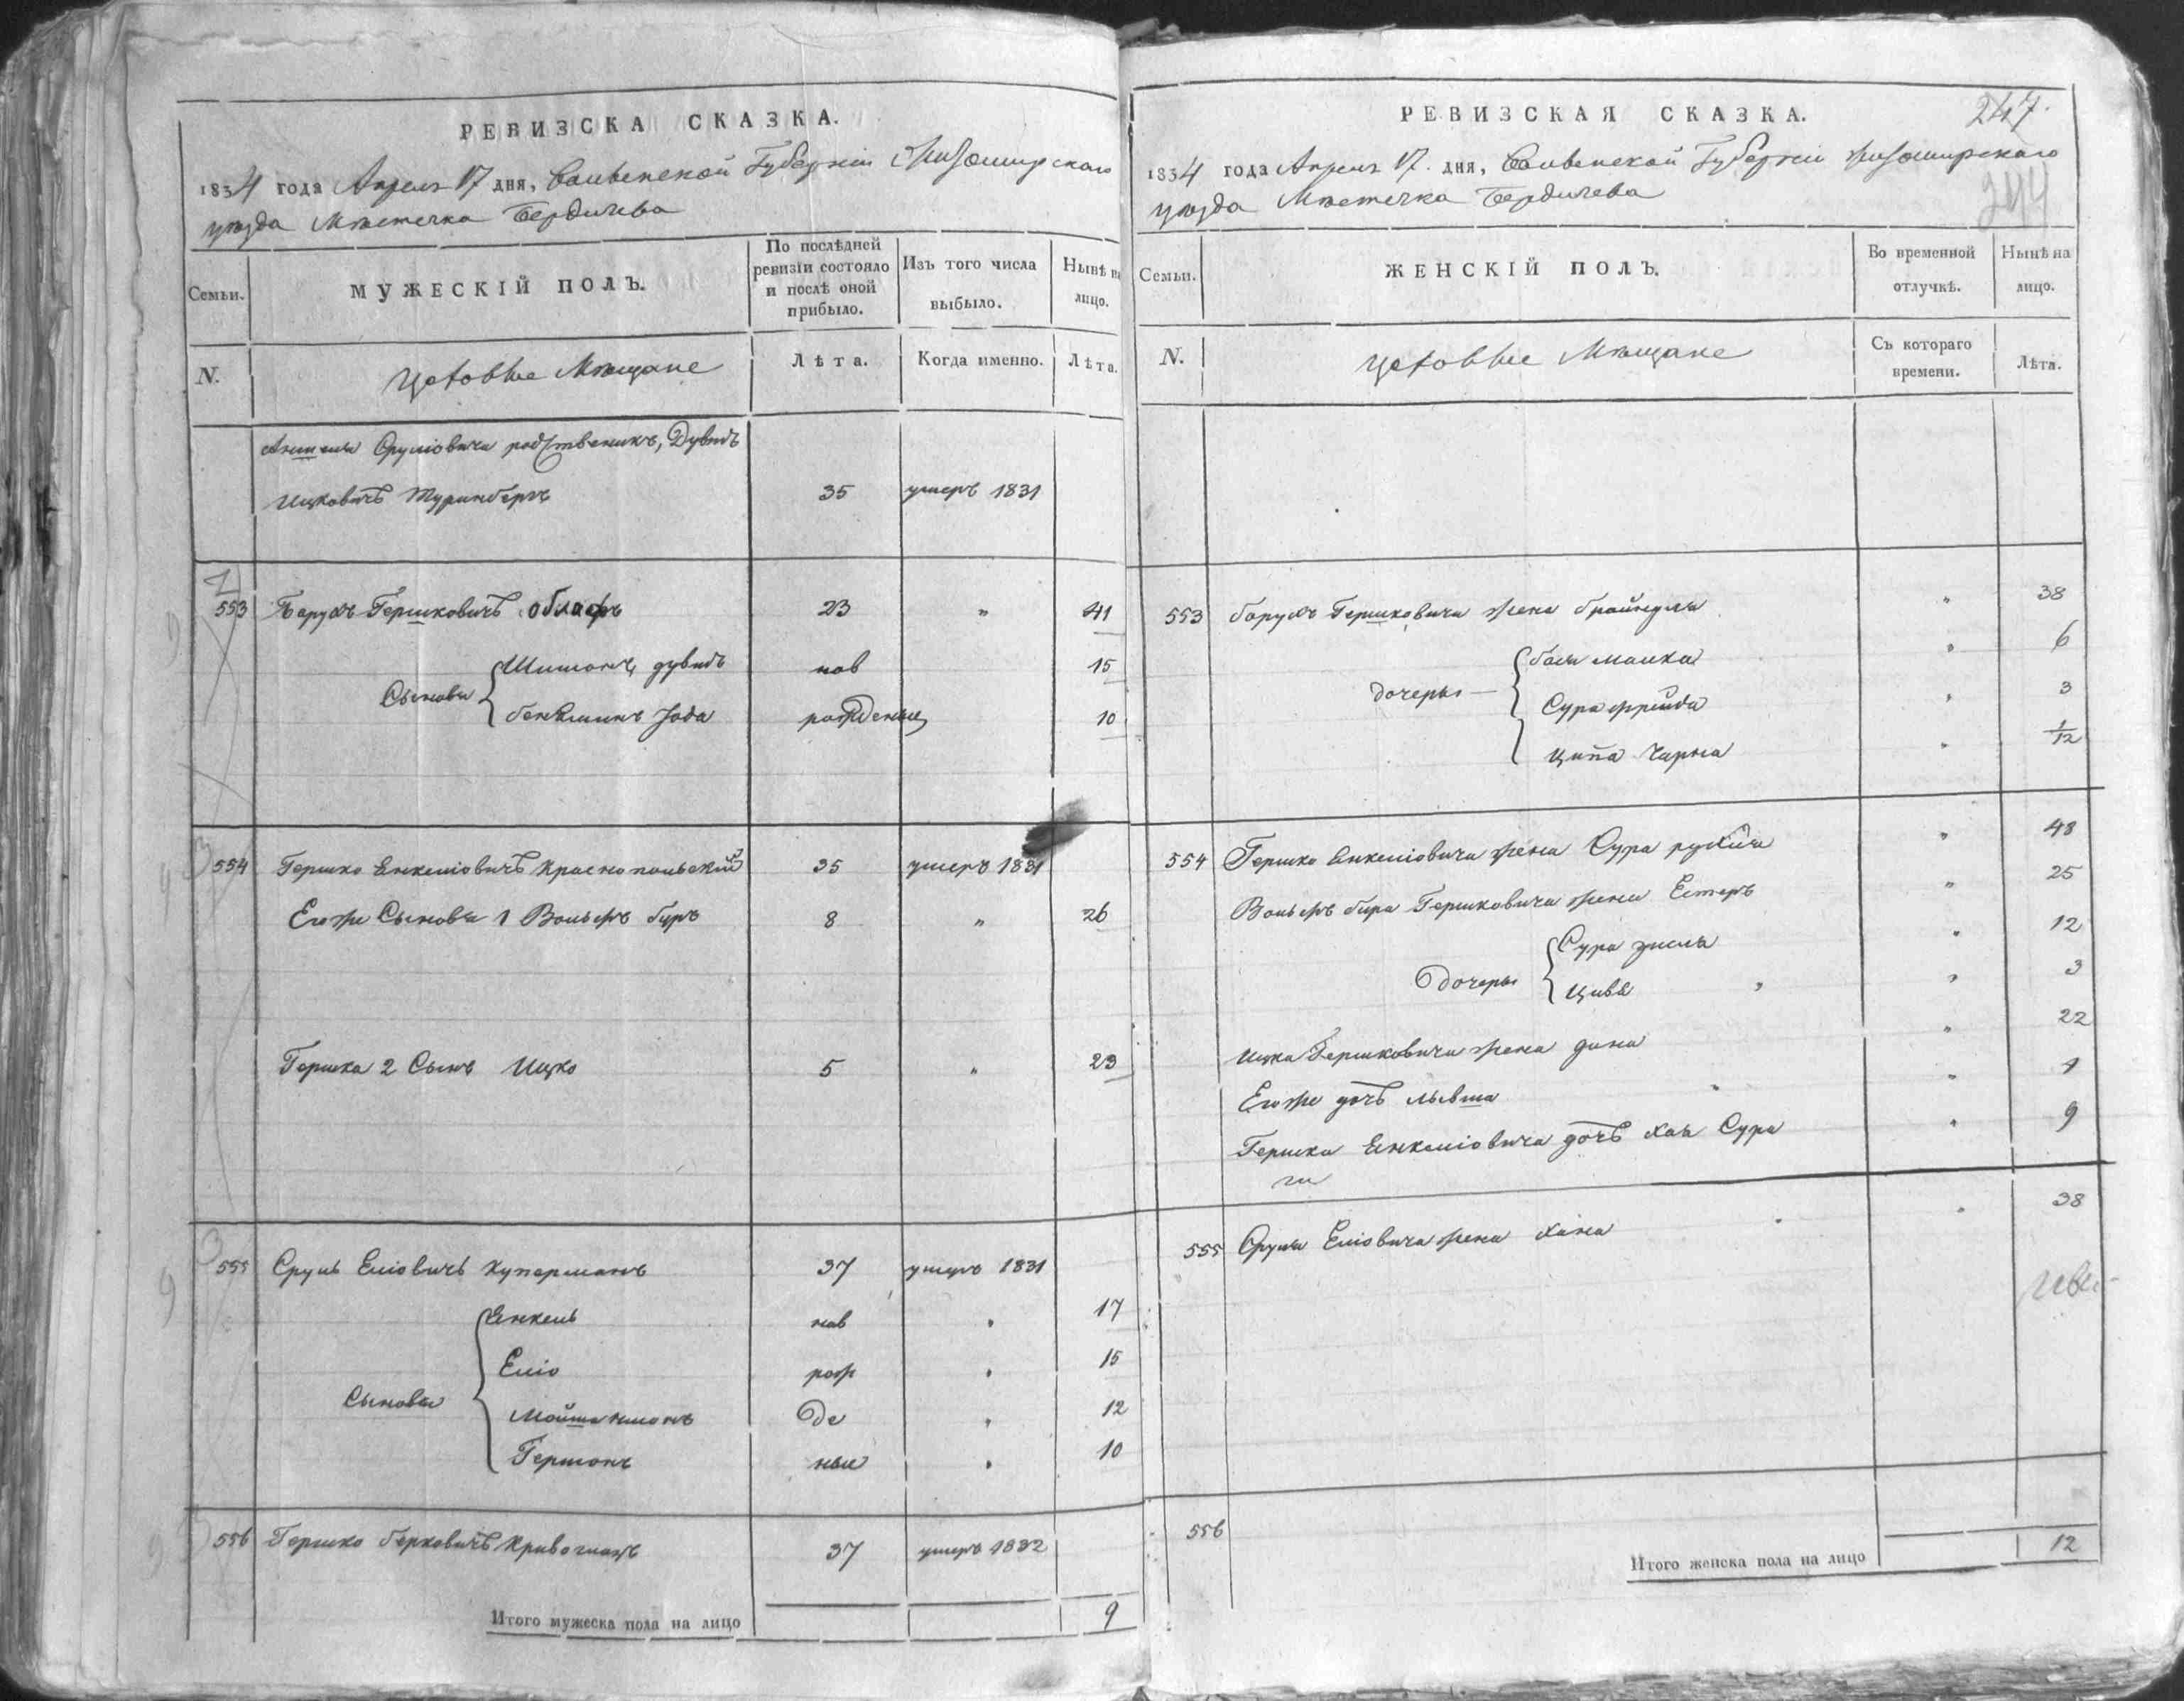 РЕВИЗСКА СКАЗКА.
1834 года Апреля 17 дня, Волынской Губерніи Житомирскаго
уѣзда Мѣстечка Бердичева
Семьи.
МУЖЕСКІЙ ПОЛЪ.
По послѣдней ревизіи состояло и послѣ оной прибыло.
Изъ того числа выбыло.
Нынѣ на лицо.
N.
Цеховые Мѣщане
Лѣта.
Когда именно.
Лѣта.
Аншеля Сруліовича родственикъ, Дувидъ
Ицковичъ 35 умеръ 1831
553 Барухъ Гершковичъ 23 " 41
Сыновья
Шимонъ дувидъ нов 15
бенѣаминъ рожденые 10
554 Гершко Янкеліовичъ Краснопольскій 35 умеръ 1831
Егоже Сыновья 1 Вольфъ беръ 8 " 26
Гершка 2 Сынъ Ицко 5 " 23
555 Сруль Еліовичъ Куперманъ 37 умеръ 1831
Сыновья
Янкель нов " 17
Еліо рож " 15
Мойша де " 12
Гершонъ ные " 10
556 Гершко берковичъ 37 умеръ 1832
Итого мужеска пола на лицо 9
РЕВИЗСКАЯ СКАЗКА.
247.
244
1834 года Апреля 17. дня, Волынской Губерніи Житомирскаго
уѣзда Мѣстечка Бердичева
Семьи.
ЖЕНСКІЙ ПОЛЪ.
Во временной отлучкѣ.
Нынѣ на лицо.
N.
Цеховые Мѣщане
Съ котораго времени.
Лѣта.
553 барухъ Гершковича жена брайндля " 38
дочеры
бася малка " 6
Сура фрейда " 3
Ципа Чарна " 1/12
554 Гершко Янкеліовича жена Сура рухля " 48
Вольфъ бера Гершковича жена Естеръ " 25
дочеры
Сура зисля " 12
Цивя " 3
Ицка Гершковича жена дина " 22
Егоже дочъ " 1
Гершка Янкеліовича дочъ хая Сура " 9
555 Сруля Еліовича жена хана " 38
556
Итого женска пола на лицо 12